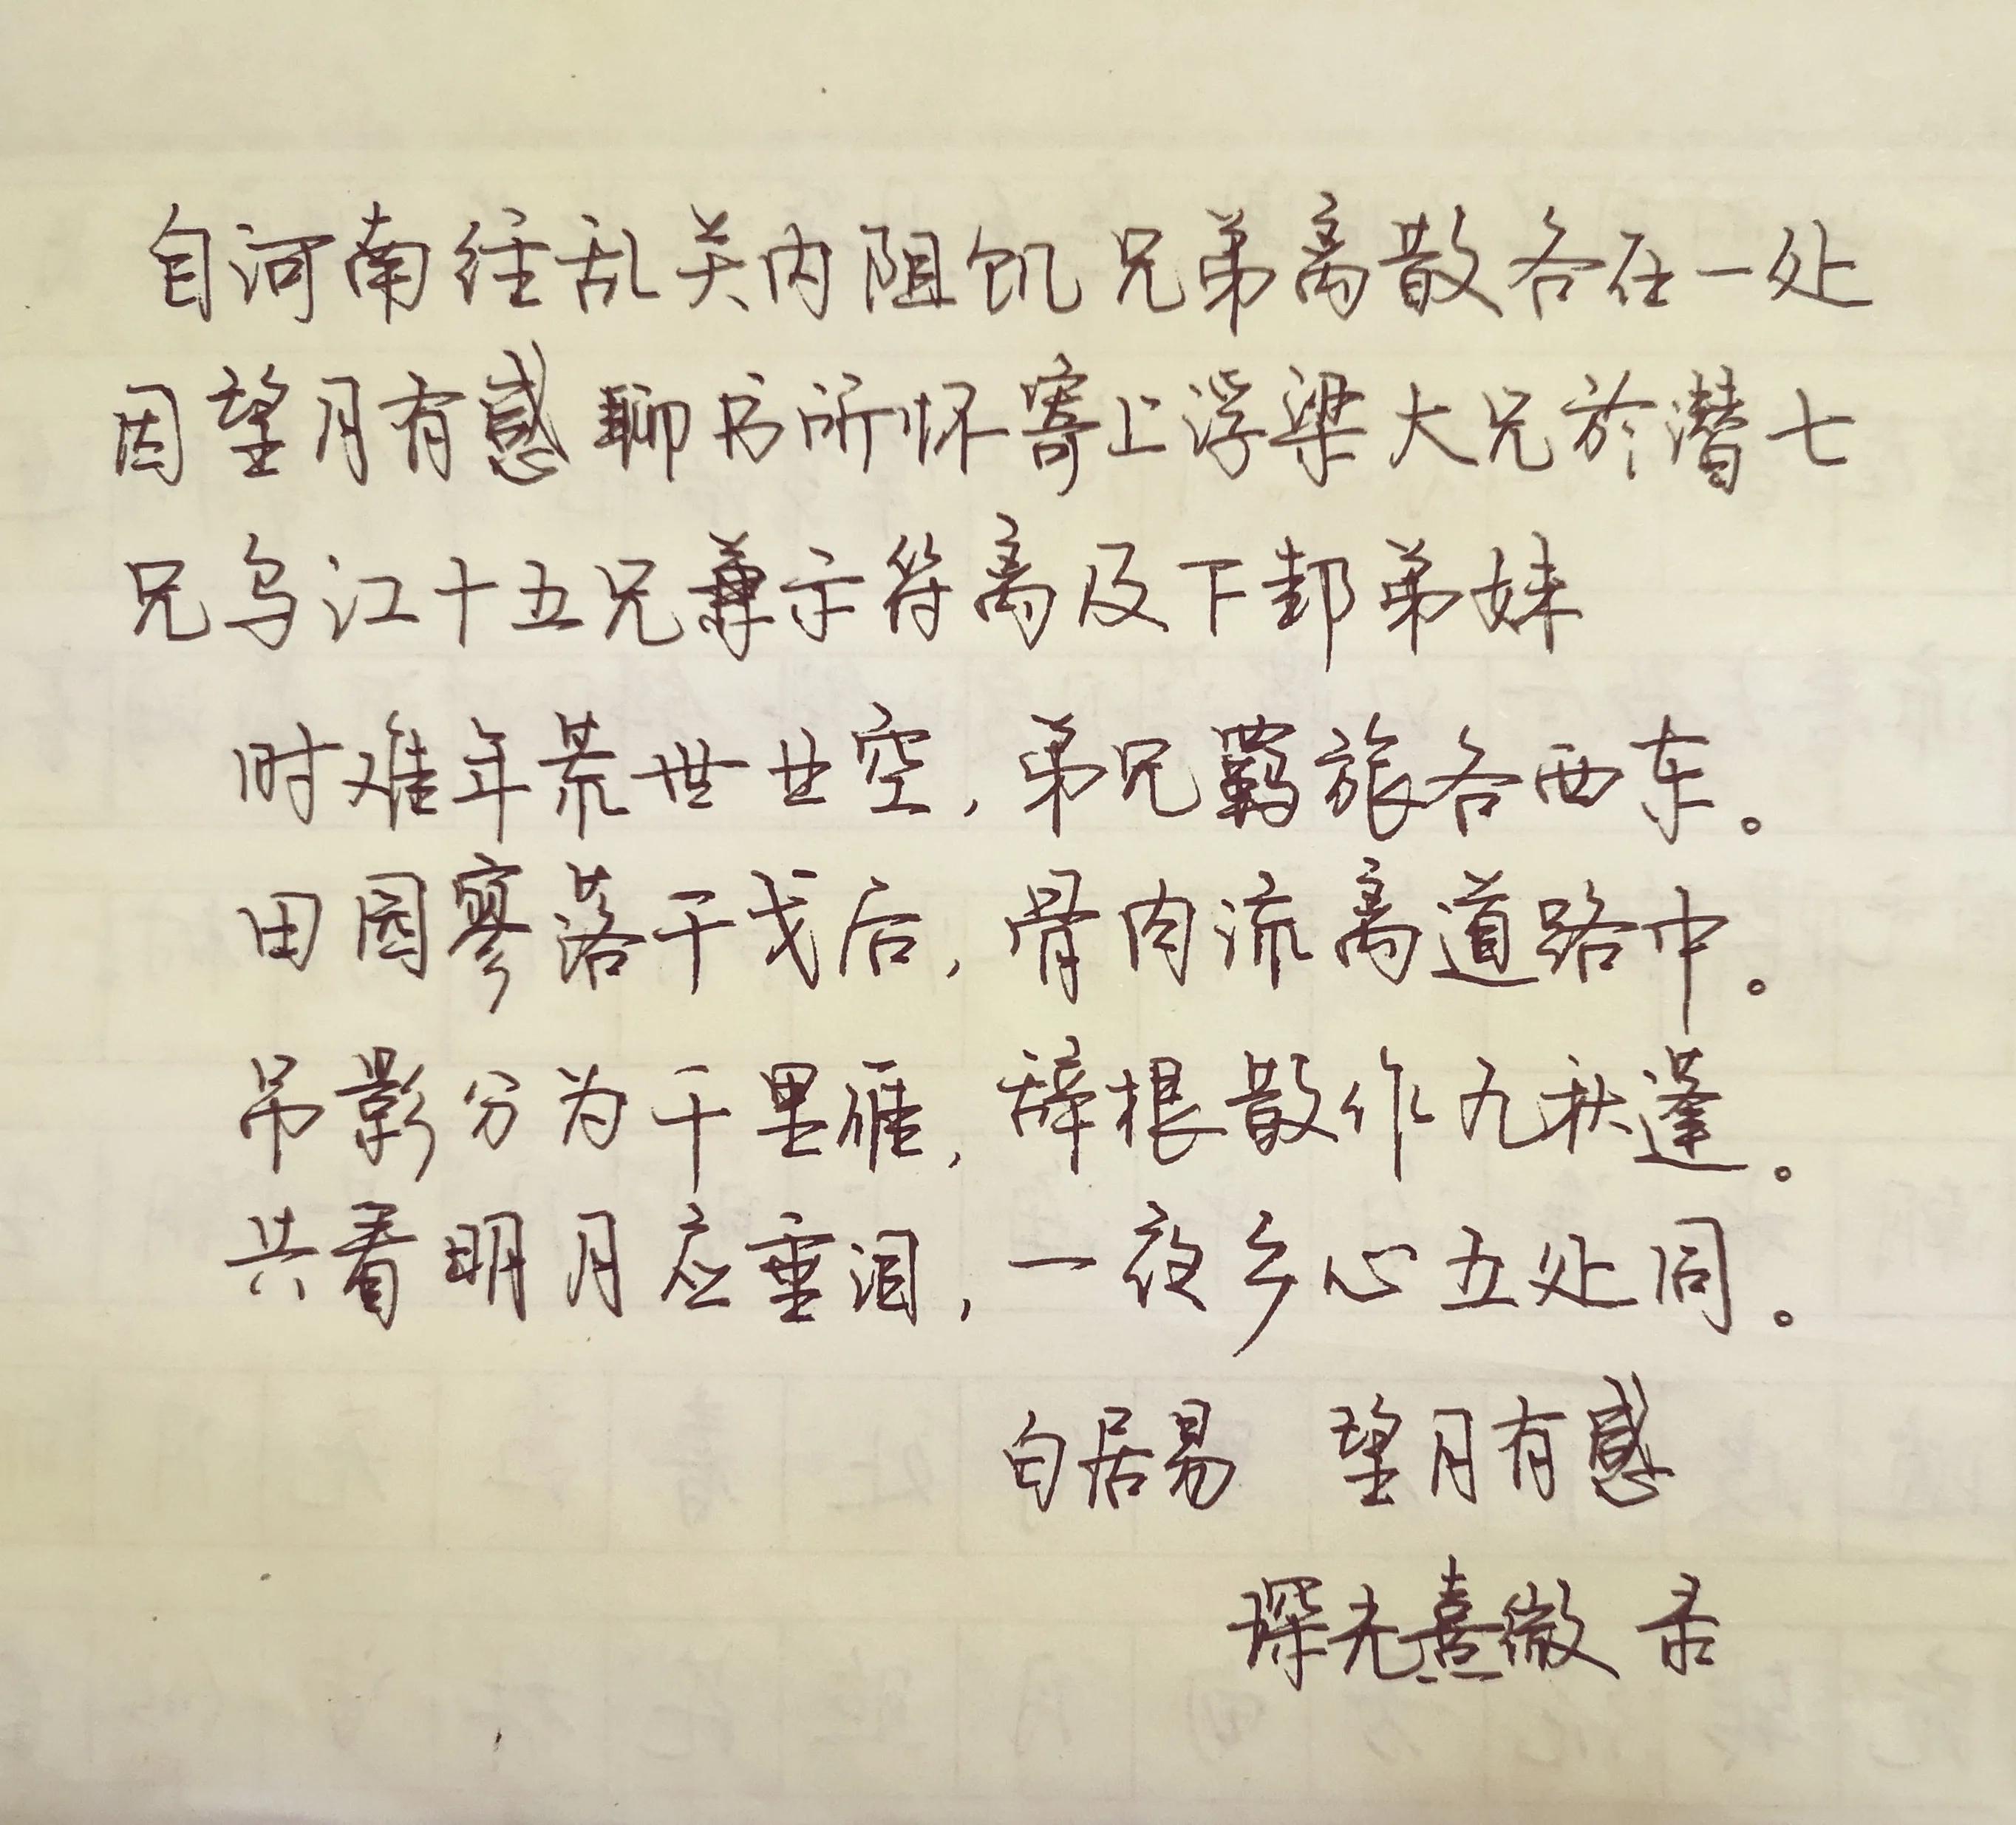 自河南经乱关内阻饥兄弟离散各在一处
因望月有感聊书所怀寄上浮梁大兄於潜七
兄乌江十五兄兼示符离及下邽弟妹
时难年荒世世空,弟兄羁旅各西东。
田园寥落干戈后,骨肉流离道路中。
吊影分为千里雁,辞根散作九秋蓬。
共看明月应垂泪,一夜乡心五处同。
白居易 望月有感
琛光喜微 录